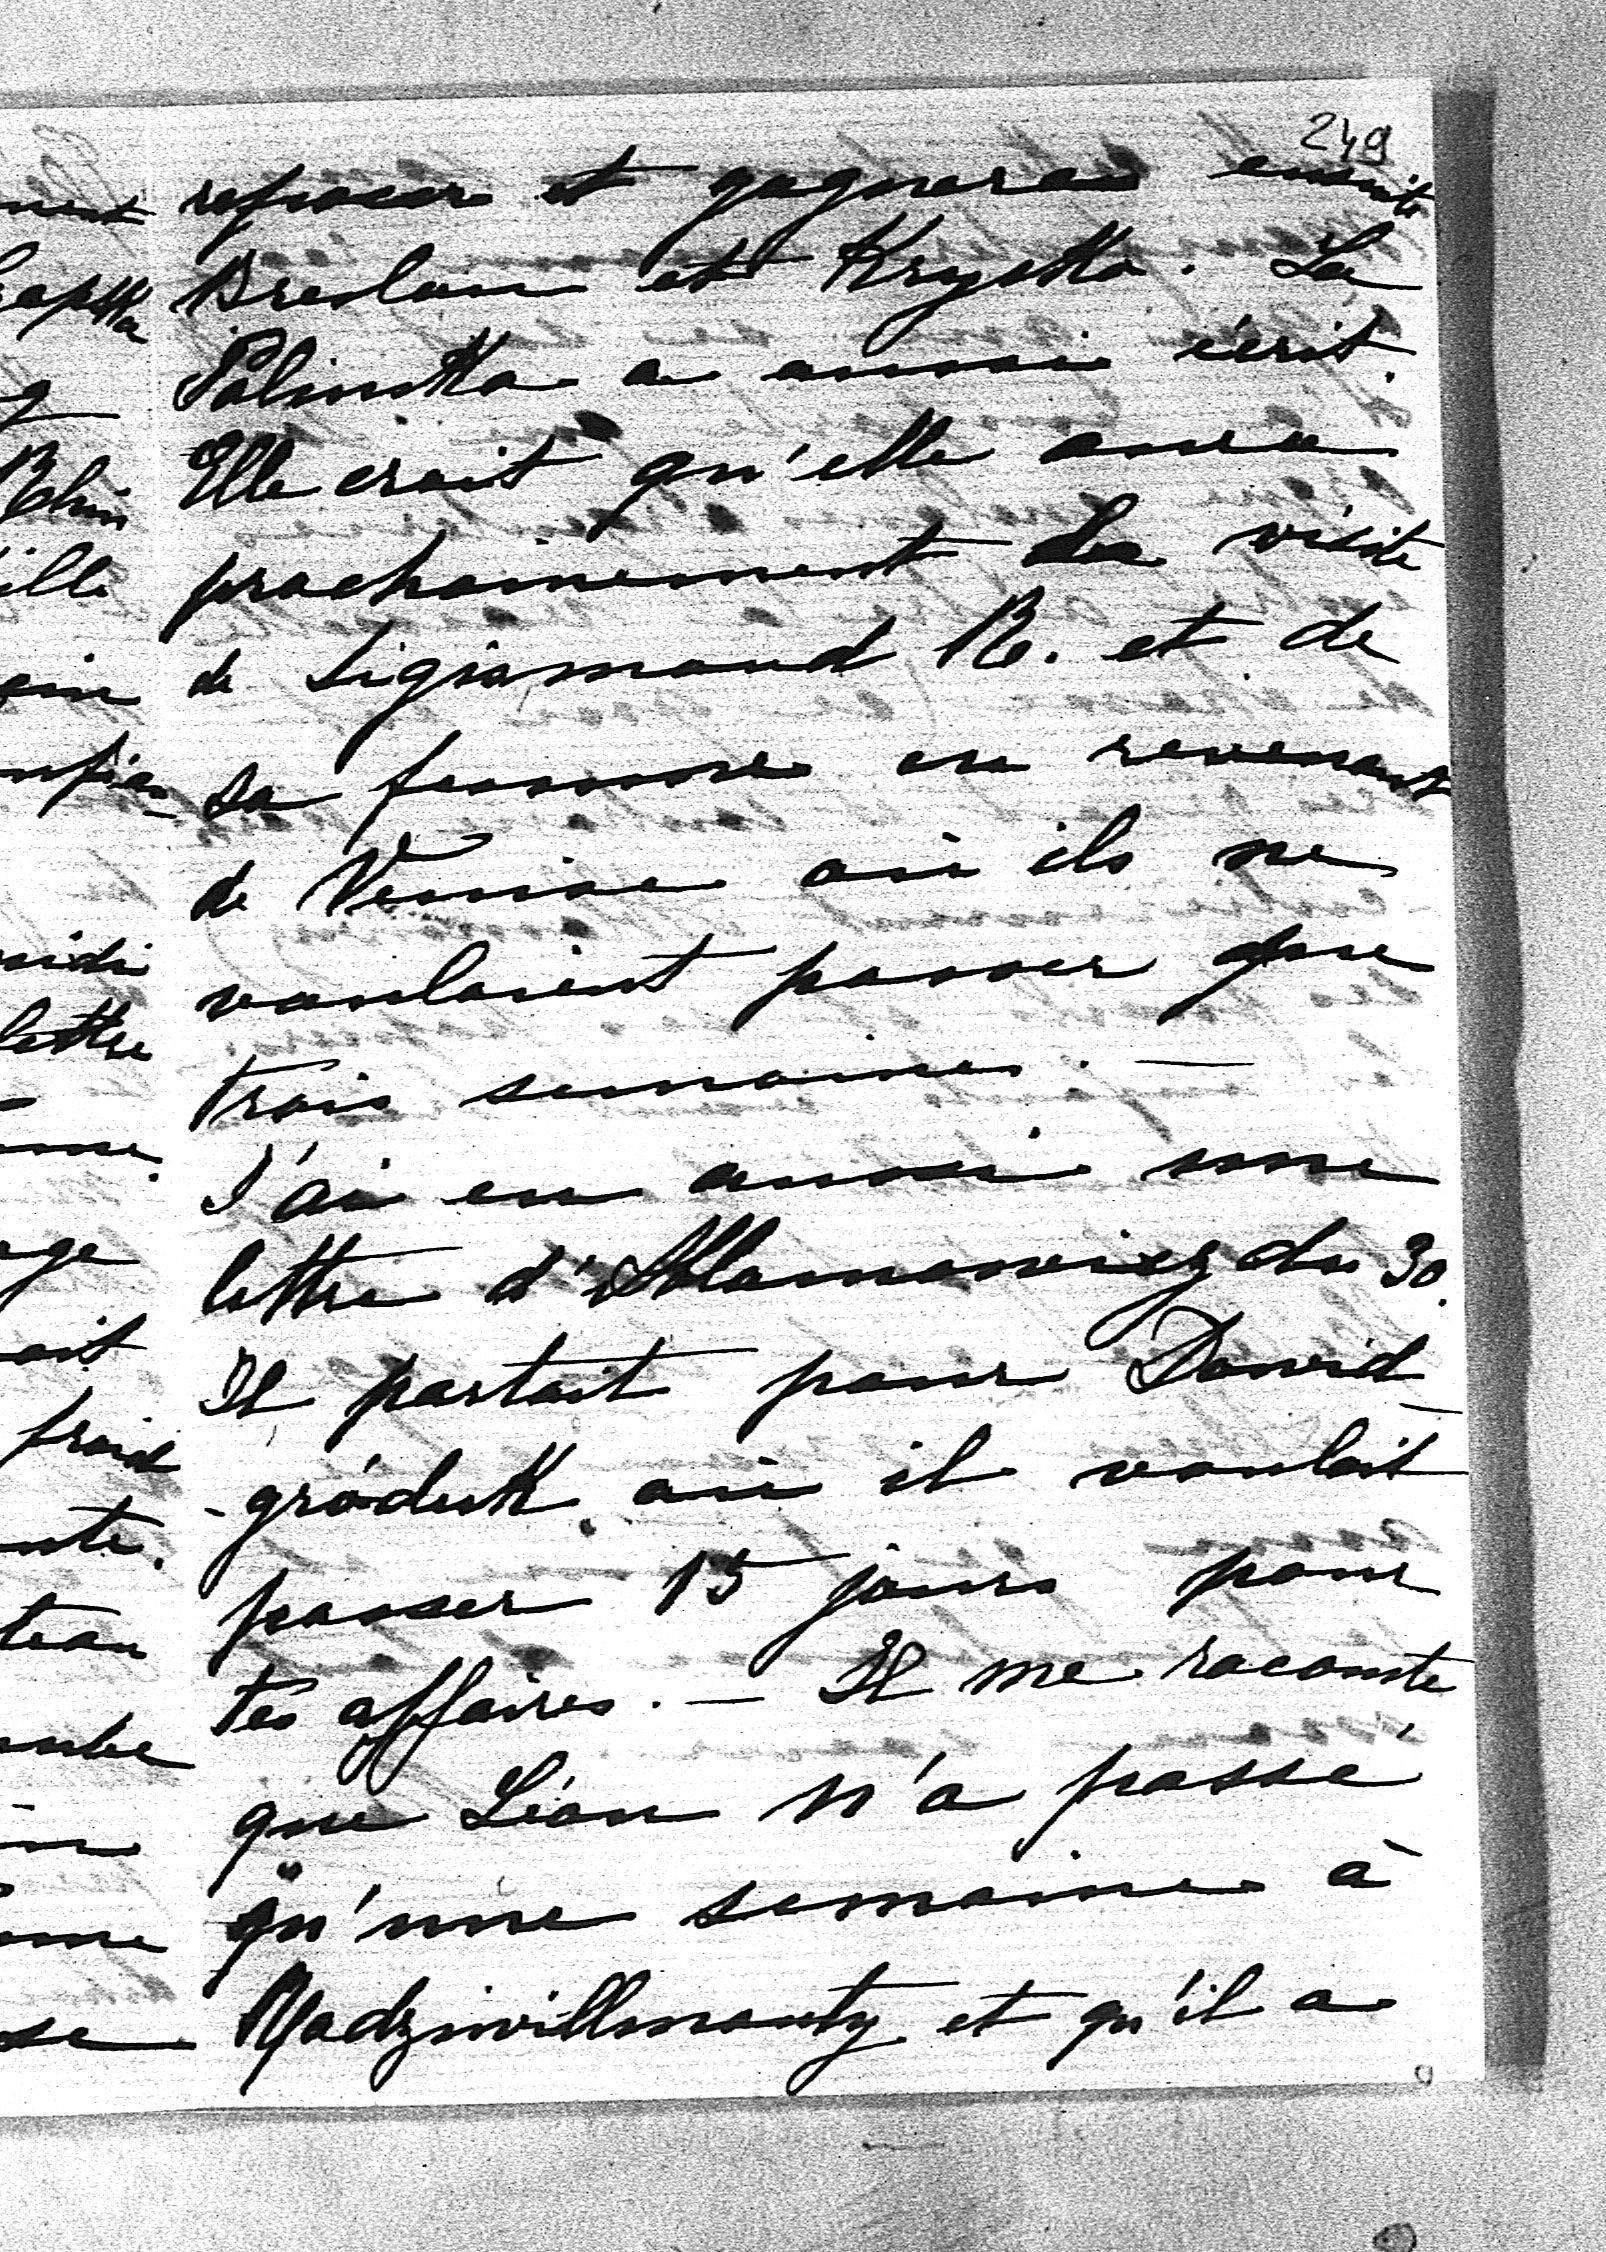 249
reposer et gagnerai ensuite
Breslau et Krystka. La
Palinska a aussi écrit.
Elle croit qu'elle aura
prochainement la visite
de Sigismond R. et de
sa femme en revenant
de Venise où ils ne
voulaient passer que
trois semaines. —
J'ai eu aussi une
lettre d'Adamowicz du 30.
Il partait pour Dawid-
-gródek où il voulait
passer 15 jours pour
tes affaires. — Il me raconte
que Léon n'a passé
qu'une semaine à
Radziwillmonty et qu'il a